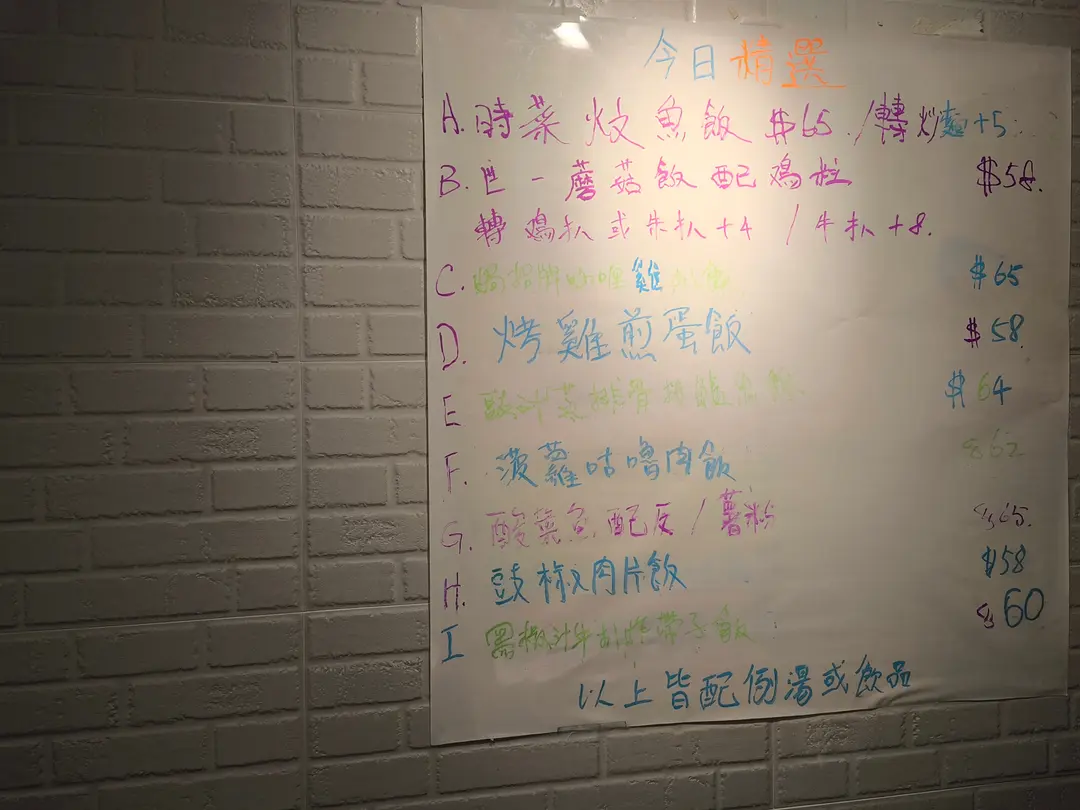 今日精選
A. 時菜炆魚飯 $65. /轉炒麵+5
B. 一蘑菇飯配鸡粒 $58.
轉鸡扒或朱扒+4 / 牛扒+8.
C. 雞 $65
D. 烤雞煎蛋飯 $58.
E $64
F. 菠蘿咕嚕肉飯 $62
G. 酸菜魚配反/薯粉 $65.
H. 豉椒肉片飯 $58
I 黑椒汁牛 帶子飯 $60
以上皆配例湯或飲品